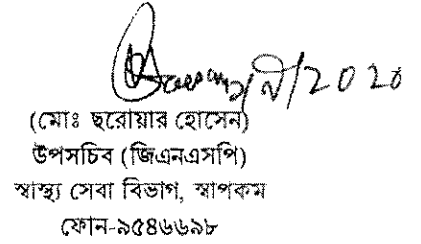 2020
(মোঃ ছরোয়ার হোসেন)
উপসচিব (জিএনএসপি)
স্বাস্থ্য সেবা বিভাগ, স্বাপকম
ফোন-৯৫৪৬৬৯৮